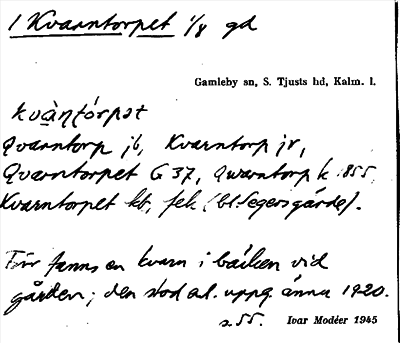 1 Kvarntorpet 1/8 gd
Gamleby sn, S. Tjusts hd, Kalm. l.
kvàɳtórpət
Qvarntorp jb, Kvarntorp jr,
Qvarntorpet G 37, Qwarntorp k 1855,
Kvarntorpet kb, fek (bl. Segersgärde).
Förr fanns en kvarn i bäcken vid
gården; den stod enl. uppg. ännu 1920.
s. 55. Ivar Modéer 1945